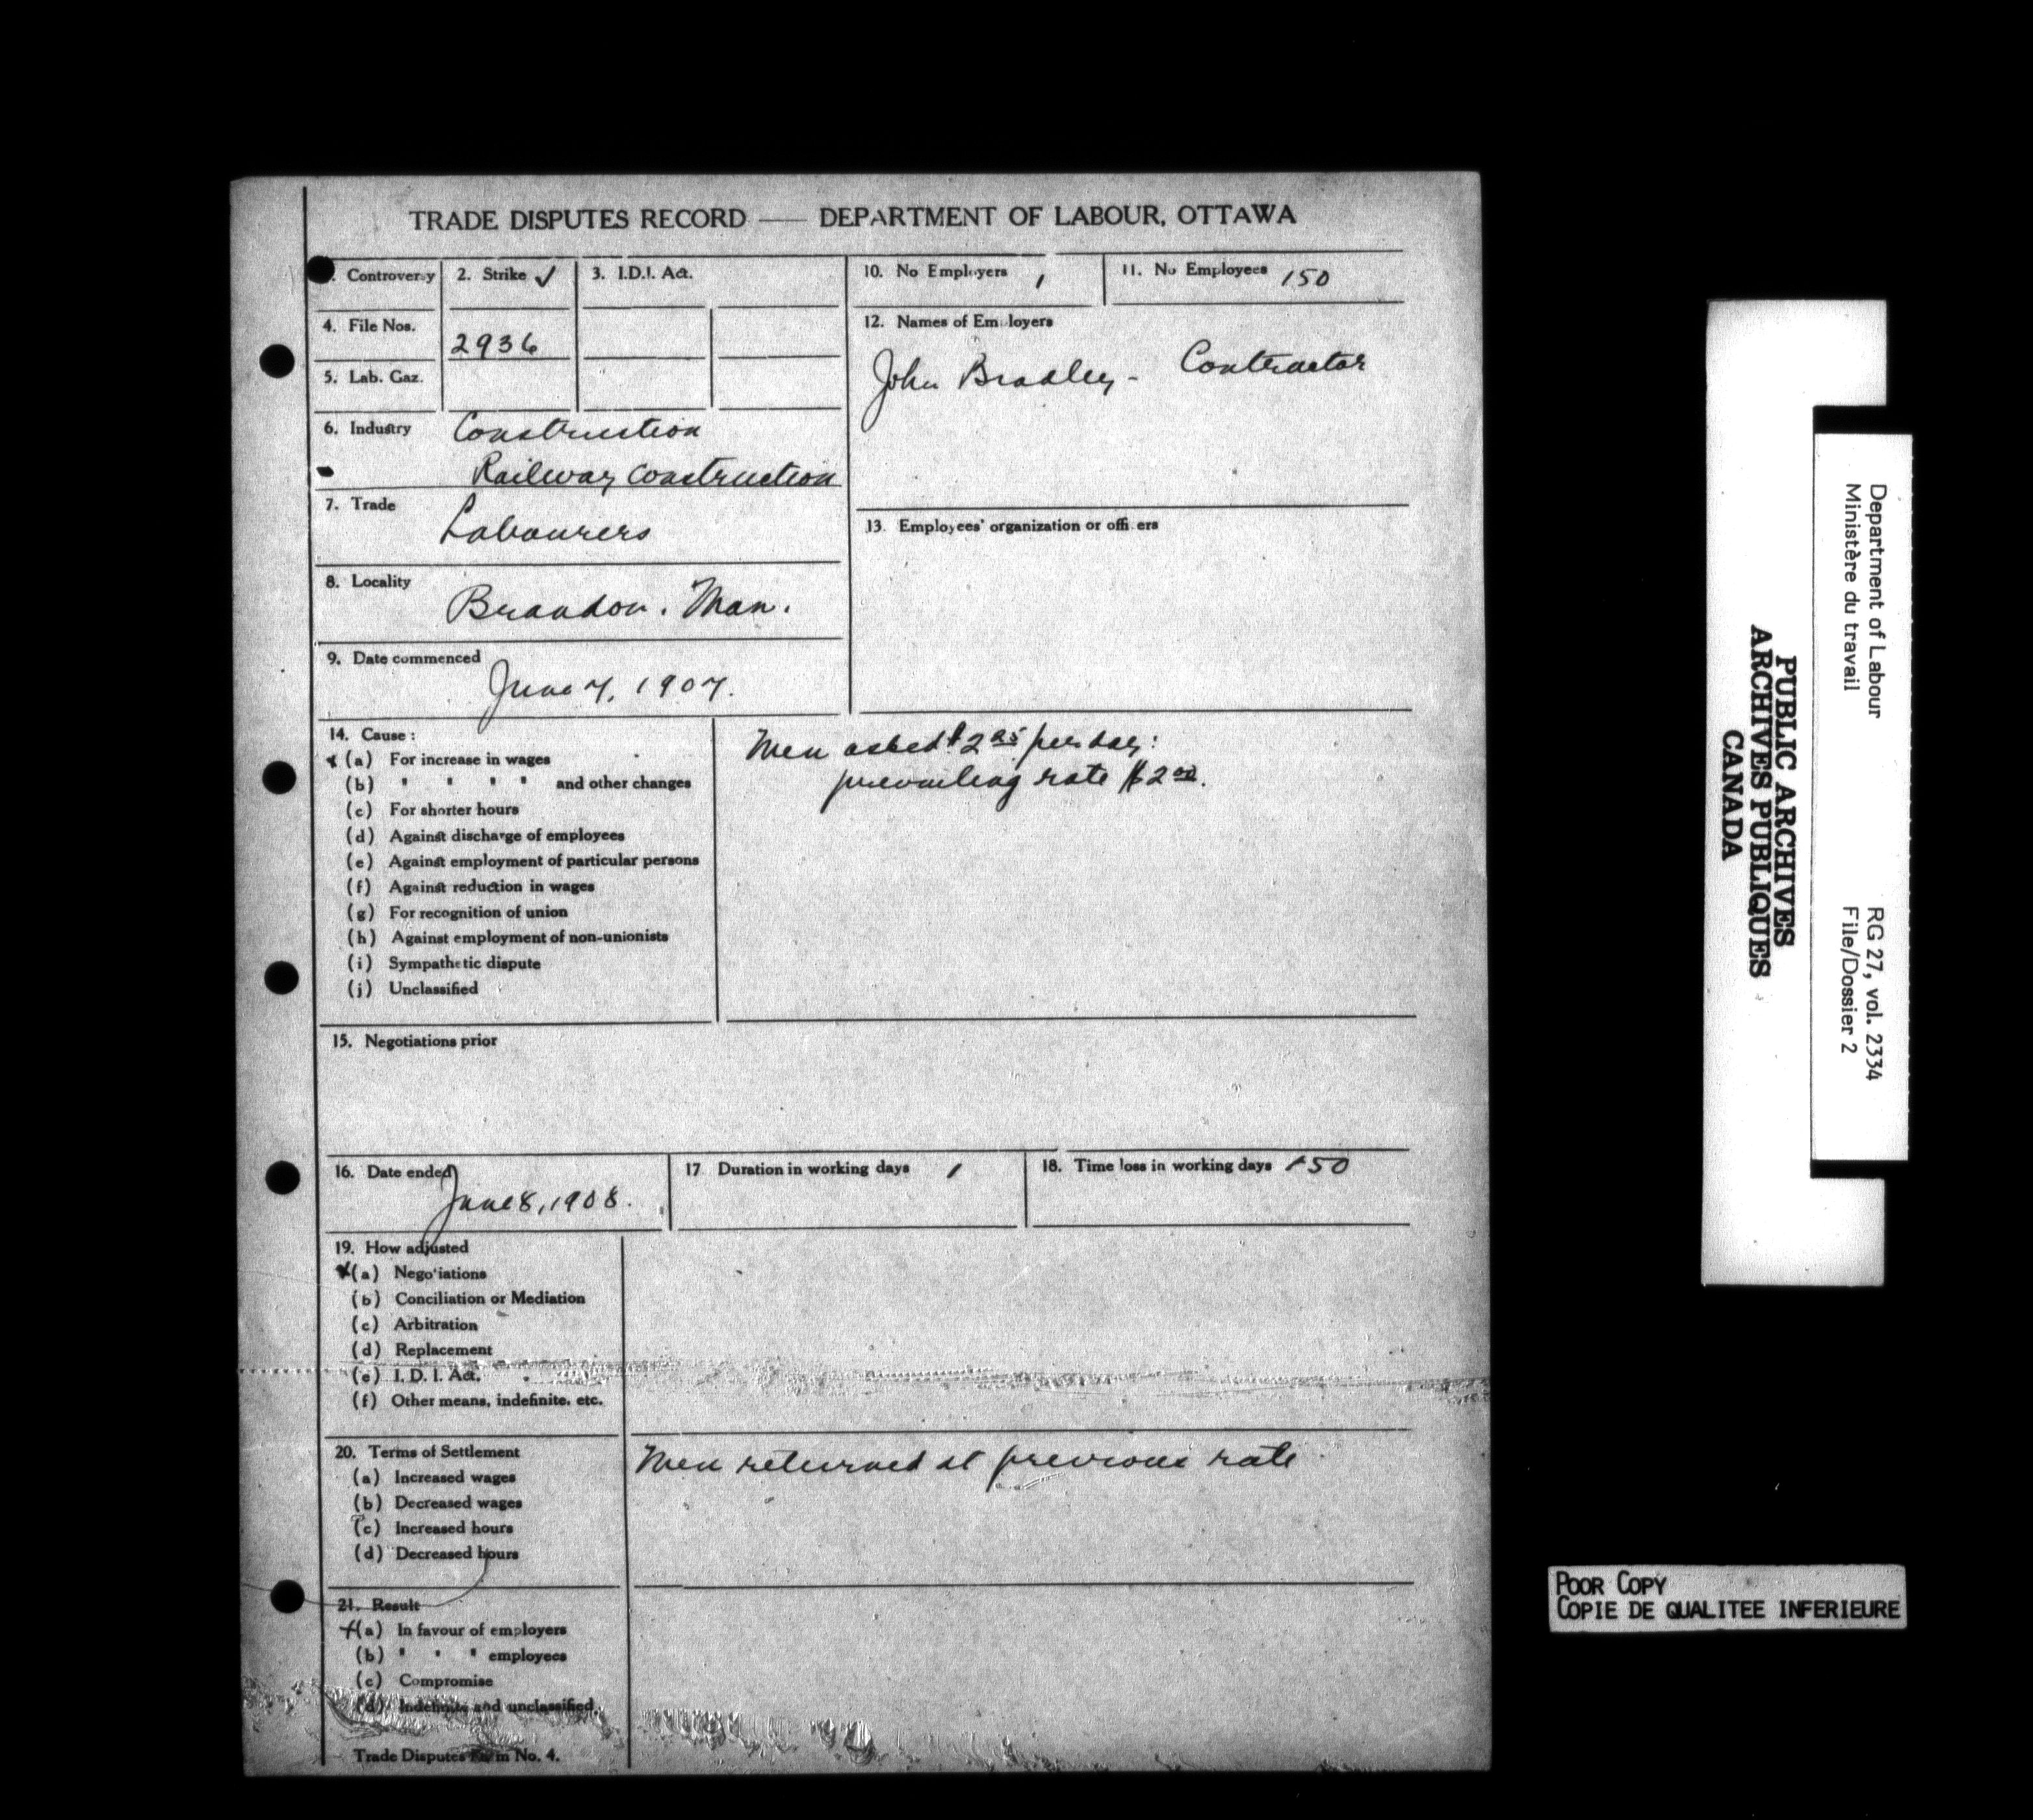 TRADE DISPUTES RECORD — DEPARTMENT OF LABOUR, OTTAWA
Controversy
2. Strike ✓
3. I.D.I. Act.
10. No Employers 1
11. No Employees 150
4. File Nos. 2936
5. Lab. Gaz.
12. Names of Employers
John Bradley - Contractor
6. Industry Construction
Railway Construction
7. Trade
Labourers
13. Employees' organization or officers
8. Locality
Brandon. Man.
9. Date commenced
June 7, 1907.
14. Cause :
x (a) For increase in wages
(b) " " " " and other changes
(c) For shorter hours
(d) Against discharge of employees
(e) Against employment of particular persons
(f) Against reduction in wages
(g) For recognition of union
(h) Against employment of non-unionists
(i) Sympathetic dispute
(j) Unclassified
Men asked $2 25 per day:
prevailing rate $2 00.
15. Negotiations prior
16. Date ended
June 8, 1908.
17 Duration in working days 1
18. Time loss in working days 150
19. How adjusted
x (a) Negotiations
(b) Conciliation or Mediation
(c) Arbitration
(d) Replacement
(e) I. D. I. Act.
(f) Other means, indefinite, etc.
20. Terms of Settlement
(a) Increased wages
(b) Decreased wages
(c) Increased hours
(d) Decreased hours
Men returned at previous rate
21. Result
x (a) In favour of employers
(b) " " " employees
(c) Compromise
(d) Indefinite and unclassified.
Trade Disputes Form No. 4.
PUBLIC ARCHIVES
ARCHIVES PUBLIQUES
CANADA
Department of Labour
Ministère du travail
RG 27, vol. 2334
File/Dossier 2
POOR COPY
COPIE DE QUALITEE INFERIEURE